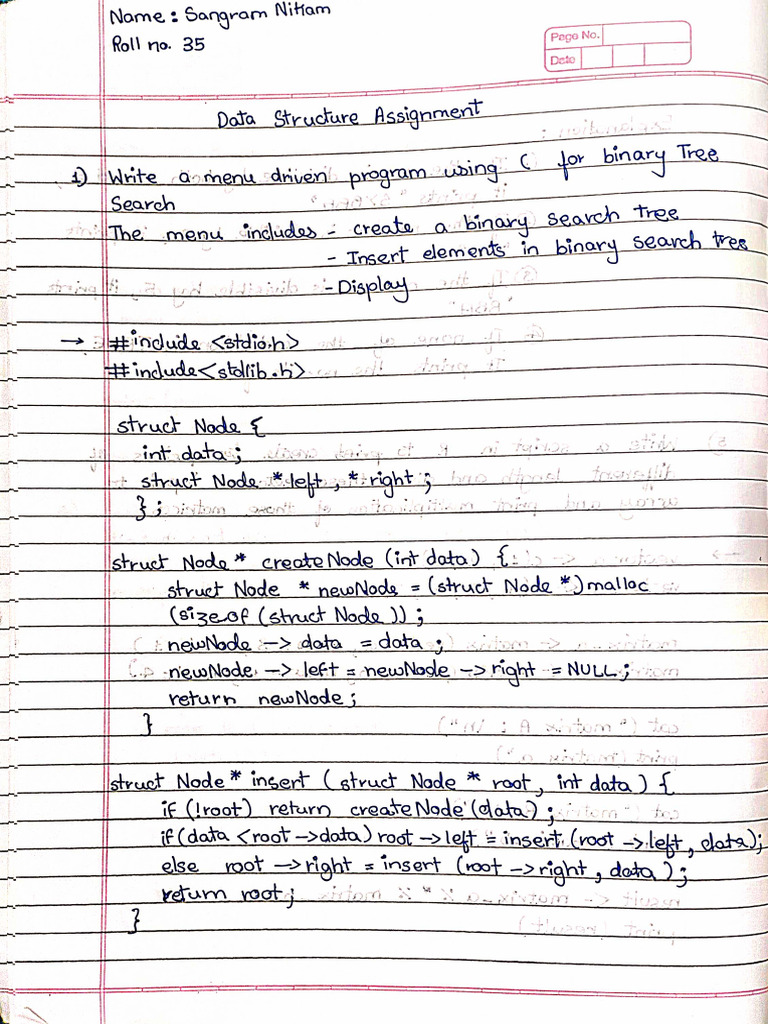 Name: Sangram Nikam
Roll no. 35
Page No.
Date
Data Structure Assignment
1) Write a menu driven program using C for binary Tree
Search
The menu includes - create a binary search tree
- Insert elements in binary search tree
- Display
→ #include <stdio.h>
#include<stdlib.h>
struct Node {
int data;
struct Node *left, *right;
};
struct Node* createNode (int data) {
struct Node * newNode = (struct Node *)malloc
(sizeof (struct Node));
newNode -> data = data;
newNode -> left = newNode -> right = NULL;
return newNode;
}
struct Node* insert (struct Node * root, int data) {
if (!root) return createNode (data);
if(data < root ->data) root ->left = insert (root ->left, data);
else root ->right = insert (root ->right, data);
return root;
}